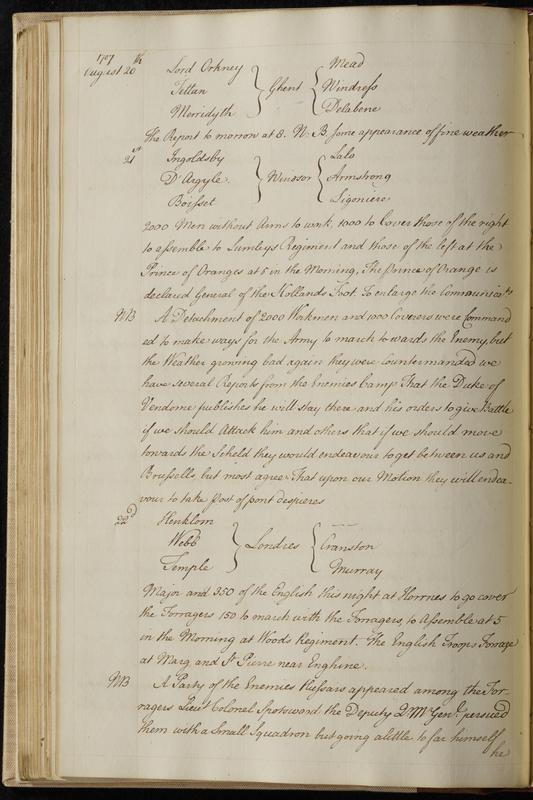 1707
August 20th Lord Orkney } Ghent { Mead
Tettan Windress
Merridyth Delabene
The Report to morrow at 8. N:B some appearance of fine weather
21st Ingoldsby } Windsor { Lalo
D'Argyle. Armstrong
Boisset Ligoniere
2000 Men without Arms to work, 1000 to Cover those of the right
to assemble to Lumleys Regiment and those of the left at the
Prince of Oranges at 5 in the Morning, The Prince of Orange is
declared General of the Hollands Foot. To enlarge the Communicatns
NB A Detachment of 2000 Workmen and 1000 Coverers were Command
ed to make ways for the Army to march towards the Enemy, but
the Weather growing bad again they were Countermanded we
have several Reports from the Enemies Camp That the Duke of
Vendome publishes he will stay there and his orders to give Battle
if we should Attack him and others that if we should move
towards the Scheld they would endeavour to get between us and
Brussells, but most agree That upon our Motion they will endea-
vour to take post of pont despieres
22d Henklom } Londres { ---
Webb Cranston
Temple Murray
Major and 350 of the English this night at Horrnes to go cover
the Forragers 150 to march with the Forragers, to Assemble at 5
in the Morning at Woods Regiment. The English Troops Forrage
at Marq and St Pierre near Enghine.
NB A Party of the Enemies Hussars appeared among the For-
ragers Lieut Colonel Spotsword the Deputy Q:Mr Genl. persued
them with a Small Squadron but going a little to far himself
he